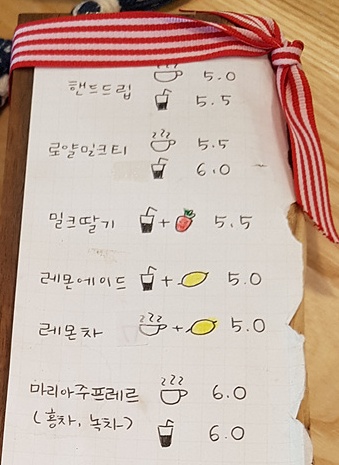 핸드드립 5.0
5.5
로얄밀크티 5.5
6.0
밀크딸기 + 5.5
레몬에이드 + 5.0
레몬차 + 5.0
마리아쥬프레르 6.0
(홍차, 녹차) 6.0